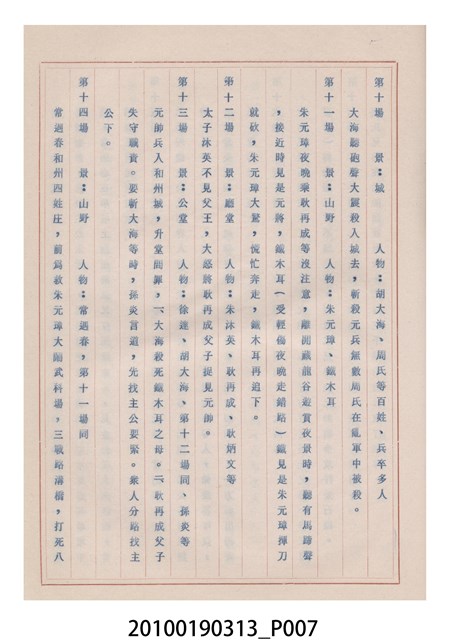 第十場　　景：城　　　人物：胡大海、周氏等百姓、兵卒多人
大海聽砲聲大震殺入城去，斬殺元兵無數周氏在亂軍中被殺。
第十一場　　景：山野　　人物：朱元璋、鐵木耳
朱元璋夜晚乘耿再成等沒注意，離開藏龍谷遊賞夜景時，聽有馬蹄聲
，接近時見是元將，鐵木耳（受輕傷夜晚走錯路）鐵見是朱元璋揮刀
就砍，朱元璋大驚，慌忙奔走，鐵木耳再追下。
第十二場　　景：廳堂　　人物：朱沐英、耿再成、耿炳文等
太子沐英不見父王，大怒將耿再成父子捉見元帥。
第十三場　　景：公堂　　人物：徐達、胡大海、第十二場同、孫炎等
元帥兵入和州城，升堂問罪，一、大海殺死鐵木耳之母。二、耿再成父子
失守職責。要斬大海等時，孫炎言道，先找主公要緊。眾人分路找主
公下。
第十四場　　景：山野　　人物：常遇春，第十一場同
常遇春和州四姓庄，前為救朱元璋大鬧武科場，三戰路溝橋，打死八
20100190313_P007